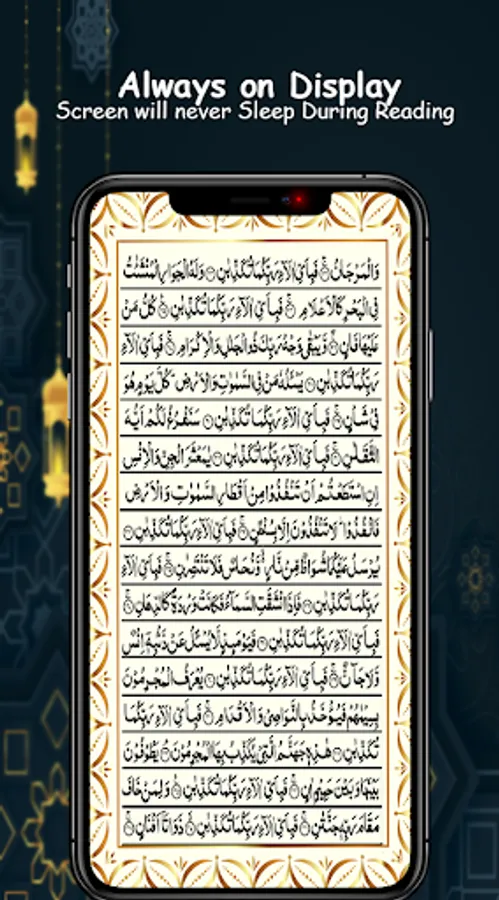 Always on Display
Screen will never Sleep During Reading
وَالْمَرْجَانُ ۚ فَبِاَيِّ اٰلَآءِ رَبِّكُمَا تُكَذِّبٰنِ ۝ وَلَهُ الْجَوَارِ الْمُنْشَئٰتُ
فِي الْبَحْرِ كَالْاَعْلَامِ ۚ فَبِاَيِّ اٰلَآءِ رَبِّكُمَا تُكَذِّبٰنِ ۝ كُلُّ مَنْ
عَلَيْهَا فَانٍ ۚ وَّيَبْقٰى وَجْهُ رَبِّكَ ذُو الْجَلٰلِ وَالْاِكْرَامِ ۚ فَبِاَيِّ اٰلَآءِ
رَبِّكُمَا تُكَذِّبٰنِ ۝ يَسْـَٔلُهٗ مَنْ فِي السَّمٰوٰتِ وَالْاَرْضِ ؕ كُلَّ يَوْمٍ هُوَ
فِيْ شَاْنٍ ۚ فَبِاَيِّ اٰلَآءِ رَبِّكُمَا تُكَذِّبٰنِ ۝ سَنَفْرُغُ لَكُمْ اَيُّهَ
الثَّقَلٰنِ ۚ فَبِاَيِّ اٰلَآءِ رَبِّكُمَا تُكَذِّبٰنِ ۝ يٰمَعْشَرَ الْجِنِّ وَالْاِنْسِ
اِنِ اسْتَطَعْتُمْ اَنْ تَنْفُذُوْا مِنْ اَقْطَارِ السَّمٰوٰتِ وَالْاَرْضِ
فَانْفُذُوْا ؕ لَا تَنْفُذُوْنَ اِلَّا بِسُلْطٰنٍ ۚ فَبِاَيِّ اٰلَآءِ رَبِّكُمَا تُكَذِّبٰنِ ۝
يُرْسَلُ عَلَيْكُمَا شُوَاظٌ مِّنْ نَّارٍ وَّنُحَاسٌ فَلَا تَنْتَصِرٰنِ ۚ فَبِاَيِّ اٰلَآءِ
رَبِّكُمَا تُكَذِّبٰنِ ۝ فَاِذَا انْشَقَّتِ السَّمَآءُ فَكَانَتْ وَرْدَةً كَالدِّهَانِ ۚ
فَبِاَيِّ اٰلَآءِ رَبِّكُمَا تُكَذِّبٰنِ ۝ فَيَوْمَئِذٍ لَّا يُسْـَٔلُ عَنْ ذَنْۢبِهٖٓ اِنْسٌ
وَّلَا جَآنٌّ ۚ فَبِاَيِّ اٰلَآءِ رَبِّكُمَا تُكَذِّبٰنِ ۝ يُعْرَفُ الْمُجْرِمُوْنَ
بِسِيْمٰهُمْ فَيُؤْخَذُ بِالنَّوَاصِيْ وَالْاَقْدَامِ ۚ فَبِاَيِّ اٰلَآءِ رَبِّكُمَا
تُكَذِّبٰنِ ۝ هٰذِهٖ جَهَنَّمُ الَّتِيْ يُكَذِّبُ بِهَا الْمُجْرِمُوْنَ ۘ يَطُوْفُوْنَ
بَيْنَهَا وَبَيْنَ حَمِيْمٍ اٰنٍ ۚ فَبِاَيِّ اٰلَآءِ رَبِّكُمَا تُكَذِّبٰنِ ۝ وَلِمَنْ خَافَ
مَقَامَ رَبِّهٖ جَنَّتٰنِ ۚ فَبِاَيِّ اٰلَآءِ رَبِّكُمَا تُكَذِّبٰنِ ۝ ذَوَاتَآ اَفْنَانٍ ۚ